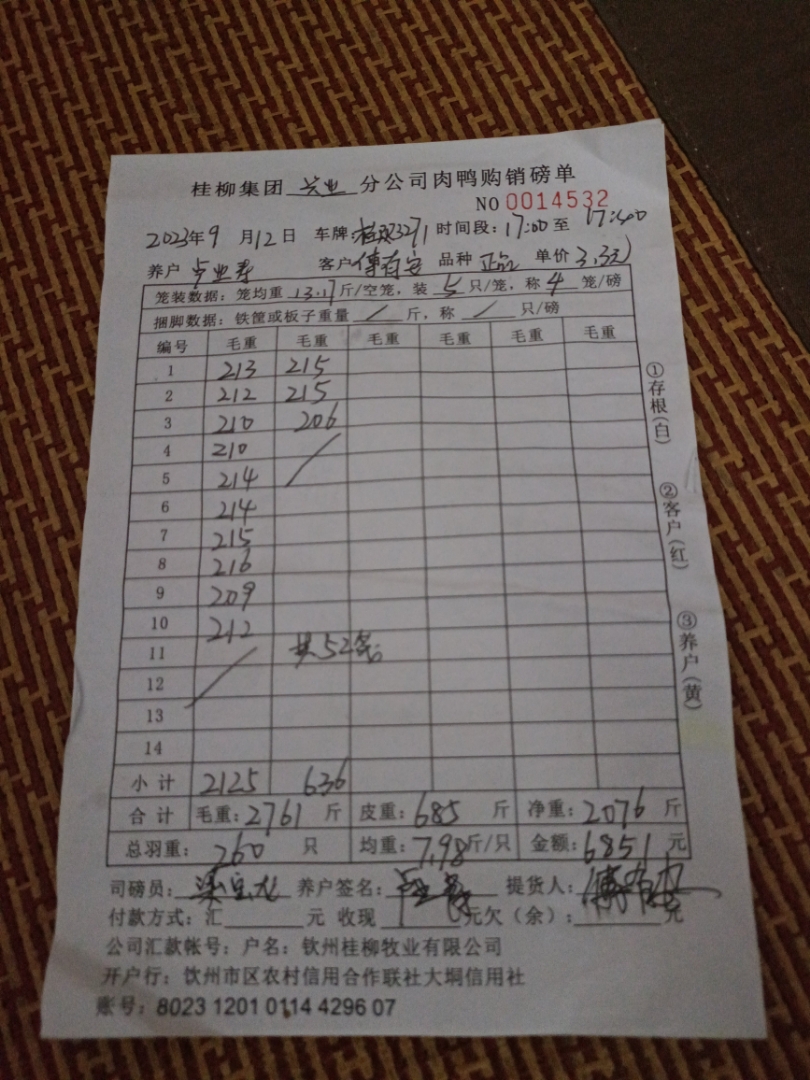 桂柳集团 兴业 分公司肉鸭购销磅单
NO 0014532
2023年9月12日 车牌: 3271 时间段: 17:00 至 17:40
养户 卢业寿 客户 傅有安 品种 正品 单价 3.3元
笼装数据: 笼均重 13.17 斤/空笼, 装 5 只/笼, 称 4 笼/磅
捆脚数据: 铁筐或板子重量 / 斤, 称 / 只/磅
编号 毛重 毛重 毛重 毛重 毛重 毛重
1 213 215
2 212 215
3 210 206
4 210
5 214
6 214
7 215
8 216
9 209
10 212
11 共52笼
12
13
14
小计 2125 636
合计 毛重: 2761 斤 皮重: 685 斤 净重: 2076 斤
总羽重: 260 只 均重: 7.98 斤/只 金额: 6851 元
司磅员: 养户签名: 提货人:
付款方式: 汇 元 收现 元欠(余): 元
公司汇款帐号: 户名: 钦州桂柳牧业有限公司
开户行: 钦州市区农村信用合作联社大垌信用社
账号: 8023 1201 0114 4296 07
①存根(白)
②客户(红)
③养户(黄)